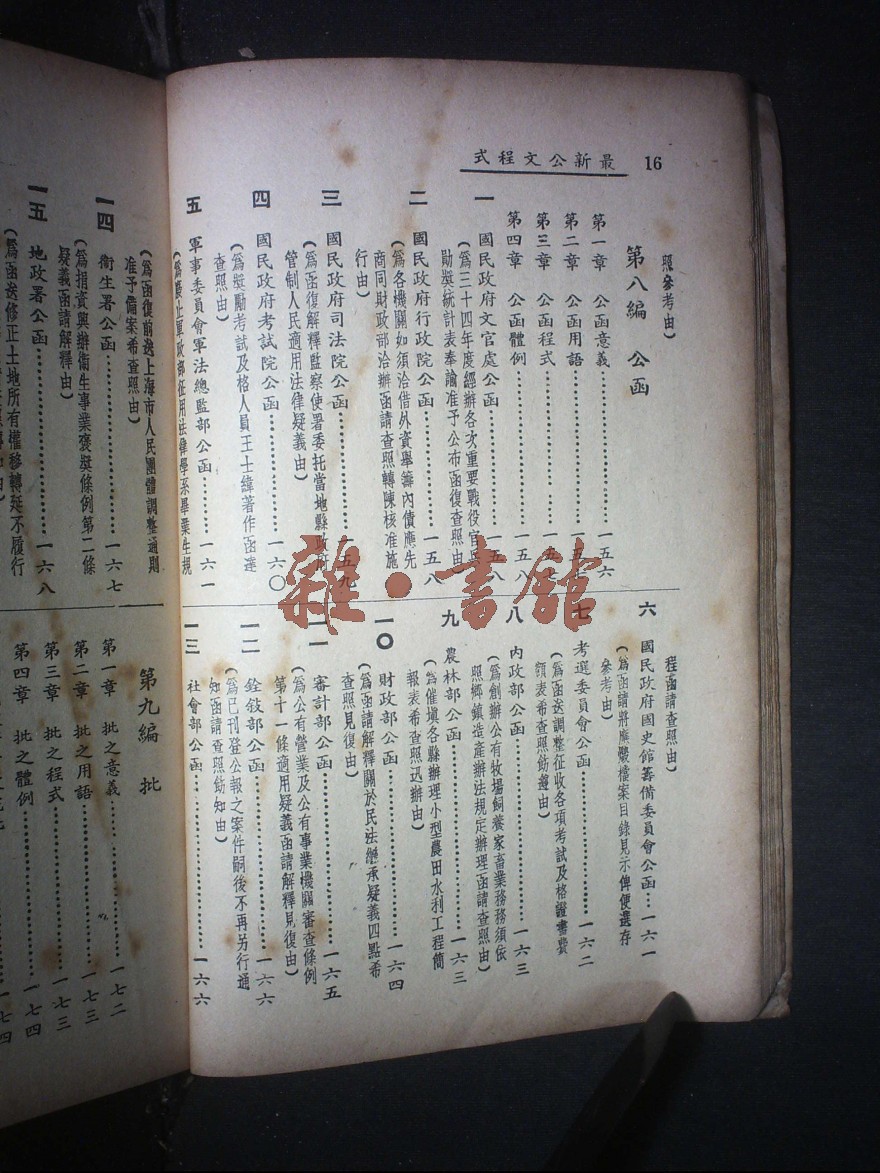 最新公文程式 16
照參考由)
第八編 公函
第一章 公函意義……一五六
第二章 公函用語……一五
第三章 公函程式……一五
第四章 公函體例……一五八
一 國民政府文官處公函……一五八
(爲三十四年度經辦各次重要戰役官兵
勛獎統計表奉諭准予公布函復查照由
二 國民政府行政院公函……一五八
(爲各機關如須洽借外資舉籌內債應先
商同財政部洽辦函請查照轉陳核准施
行由)
三 國民政府司法院公函……一五九
(爲函復解釋監察使署委托當地縣政府
管制人民適用法律疑義由)
四 國民政府考試院公函……一六〇
(爲獎勵考試及格人員王士緯著作函達
查照由)
五 軍事委員會軍法總監部公函……一六一
(爲廢止軍政部征用法律學系畢業生規
程函請查照由)
六 國民政府國史館籌備委員會公函……一六一
(爲函請將應檔案目錄見示俾便選存
參考由)
七 考選委員會公函……一六二
(爲函送調整征收各項考試及格證書費
額表希查照飭遵由)
八 內政部公函……一六三
(爲創辦公有牧場飼養家畜業務務須依
照鄉鎮造產辦法規定辦理函請查照由)
九 農林部公函……一六三
(爲催填各縣辦理小型農田水利工程簡
報表希查照迅辦由)
一〇 財政部公函……一六四
(爲函請解釋關於民法繼承疑義四點希
查照見復由)
一一 審計部公函……一六五
(爲公有營業及公有事業機關審查條例
第十一條適用疑義函請解釋見復由)
一二 銓敍部公函……一六六
(爲已刊登公報之案件嗣後不再另行通
知函請查照飭知由)
一三 社會部公函……一六六
(爲函復前送上海市人民團體調整通則
准予備案希查照由)
一四 衞生署公函……一六七
(爲捐資興辦衞生事業褒獎條例第二條
疑義函請解釋由)
一五 地政署公函……一六八
(爲函送修正土地所有權移轉延不履行
第九編 批
第一章 批之意義……一七二
第二章 批之用語……一七三
第三章 批之程式……一七三
第四章 批之體例……一七四
一七四
雜·書館